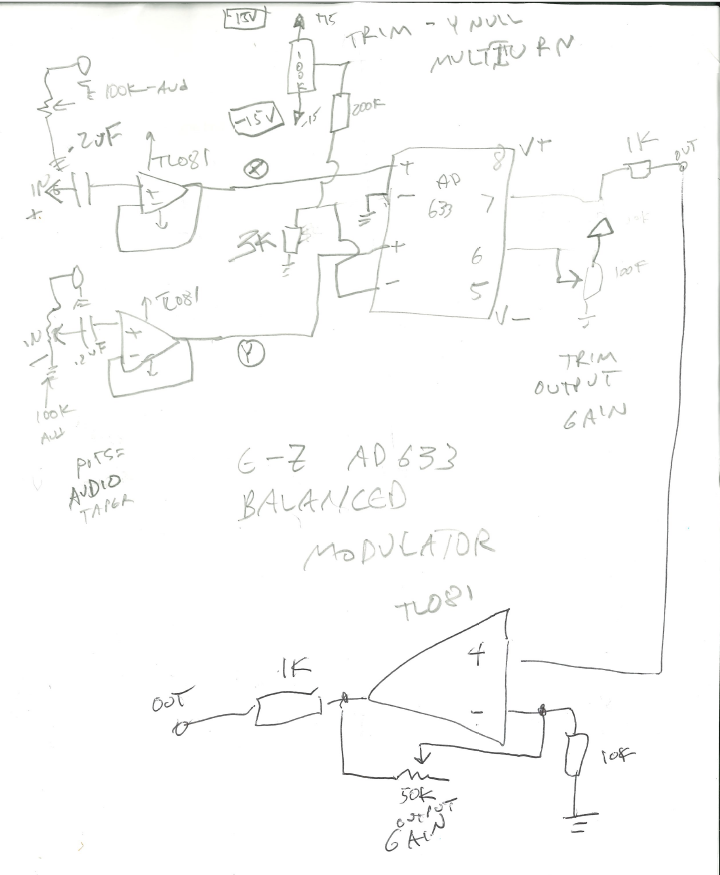 -15V
+15
TRIM - Y NULL
MULTITURN
100K
100K-AUD
-15V
-15
200K
.2UF
TL081
IN
X
X
+
+
-
AD
633
8
V+
7
6
5
V-
1K
OUT
3K
+
-
100K
TL081
IN
.2UF
+
-
Y
100K
AUD
TRIM
OUTPUT
GAIN
POTS=
AUDIO
TAPER
E-Z AD633
BALANCED
MODULATOR
TL081
+
-
1K
OUT
10K
50K
OUTPUT
GAIN